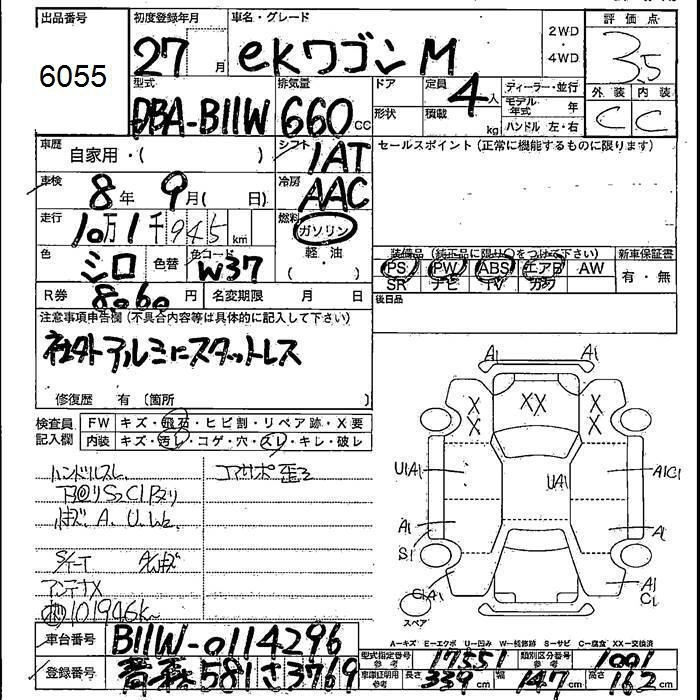 出品番号 初度登録年月 車名・グレード 2WD ・ 4WD 評価点
6055 27 月 ekワゴン M 3.5
型式 排気量 ドア 定員 4 人 ディーラー・並行 外装 内装
DBA-B11W 660 CC 形状 積載 kg モデル年式 年 C C
ハンドル 左・右
車歴 自家用・( ) シフト 1AT セールスポイント (正常に機能するものに限ります)
車検 8年 9月 ( 日) 冷房 AAC
走行 10万1千945 km 燃料 ガソリン
色 シロ 色替 色コード W37 軽・油
装備品 (純正品に限り○をつけて下さい) 新車保証書
PS PW ABS エアB AW 有・無
SR ナビ TV カワ
R券 8060円 名変期限 月 日 後日品
注意事項申告欄 (不具合内容等は具体的に記入して下さい)
社外アルミにスタットレス
修復歴 有 〔箇所 〕
検査員記入欄 FW キズ・飛石・ヒビ割・リペア跡・X要
内装 キズ・汚レ・コゲ・穴・スレ・キレ・破レ
ハンドルスレ コアサポ歪ミ
下回りS2C1Pスリ
A. U. W2
アンテナX
101946K
A1 A1
X X XX X X
U1A1 UA1 A1C1
A1 A1
S1
A1 C1
スペア
A-キズ E-エクボ U-凹み W-補修跡 S-サビ C-腐食 XX-交換済
車台番号 B11W-0114296
型式指定番号 参考 17551 類別区分番号 参考 1001
登録番号 青森581さ3769
車庫証明用 参考 長さ 339 cm 幅 147 cm 高さ 162 cm